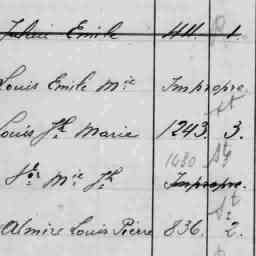 Julien Emile 44. 1.
Louis Emile Mie Impropre
St
Louis Jh Marie 1243. 3.
1480 St
Jh Mie Jh Impropre.
St
Almire Louis Pierre 836. 2.